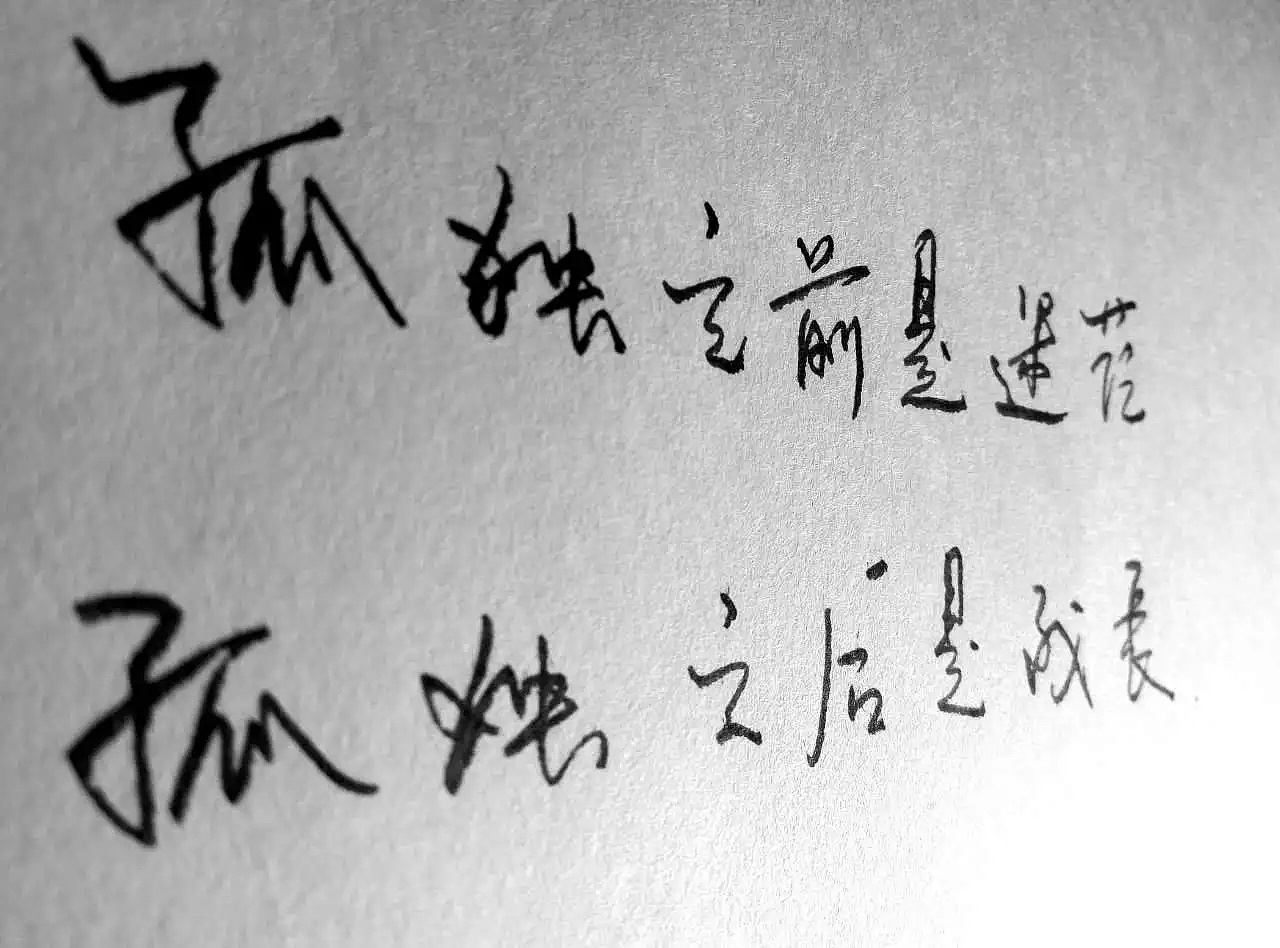 孤独之前是迷茫
孤独之后是成长